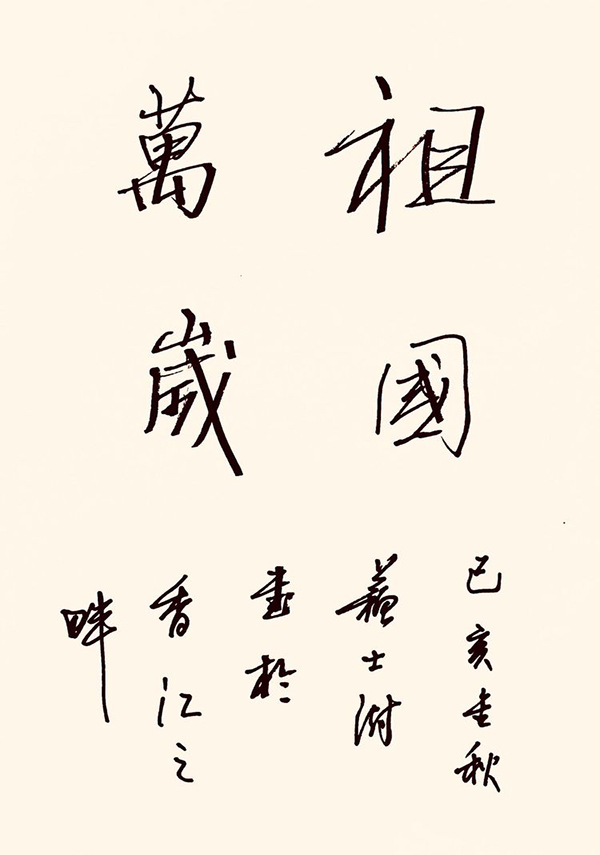 祖國
萬歲
己亥金秋
蘇士澍
書於
香江之
畔